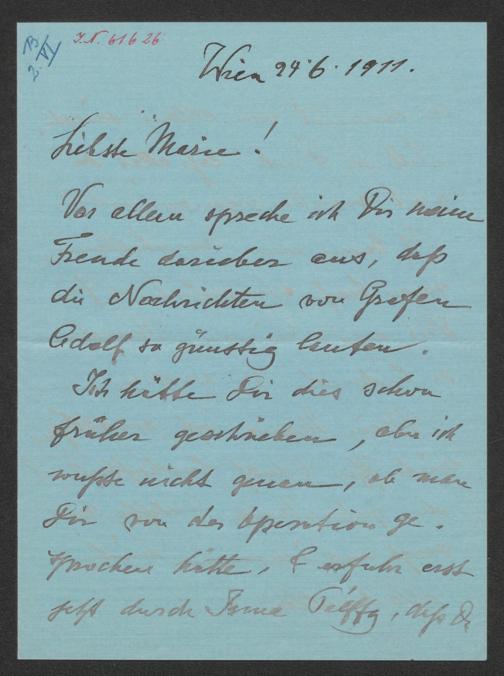 B
2. VI
I.N. 61626
Wien 24.6.1911.
Liebste Marie!
Vor allem spreche ich Dir meine
Freude darüber aus, daß
die Nachrichten von Grafen
Adolf so günstig lauten.
Ich hätte Dir dies schon
früher geschrieben, aber ich
wußte nicht genau, ob man
Dir von der Operation ge-
sprochen hätte, & erfuhr erst
jetzt durch Irma Pálffy, daß Du